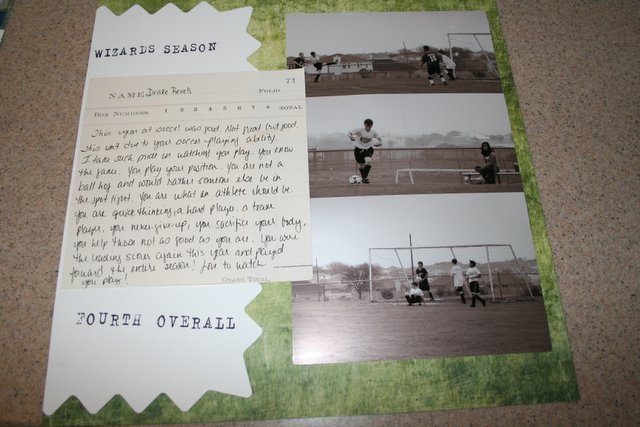 WIZARDS SEASON
71
NAME Drake Revels FOLIO
BOX NUMBERS 1 2 3 4 5 6 7 8 TOTAL
This year at soccer was good. Not great but good.
This isnt due to your soccer-playing ability.
I take such pride in watching you play. You know
the game. You play your position. You are not a
ball hog and would rather someone else be in
the spot light. You are what an athlete should be.
you are quick thinking, a hard player, a team
player, you never-give-up, you sacrifice your body,
you help those not as good as you are. You were
the leading scorer again this year and played
forward the entire season! Love to watch
you play!
GRAND TOTAL
FOURTH OVERALL